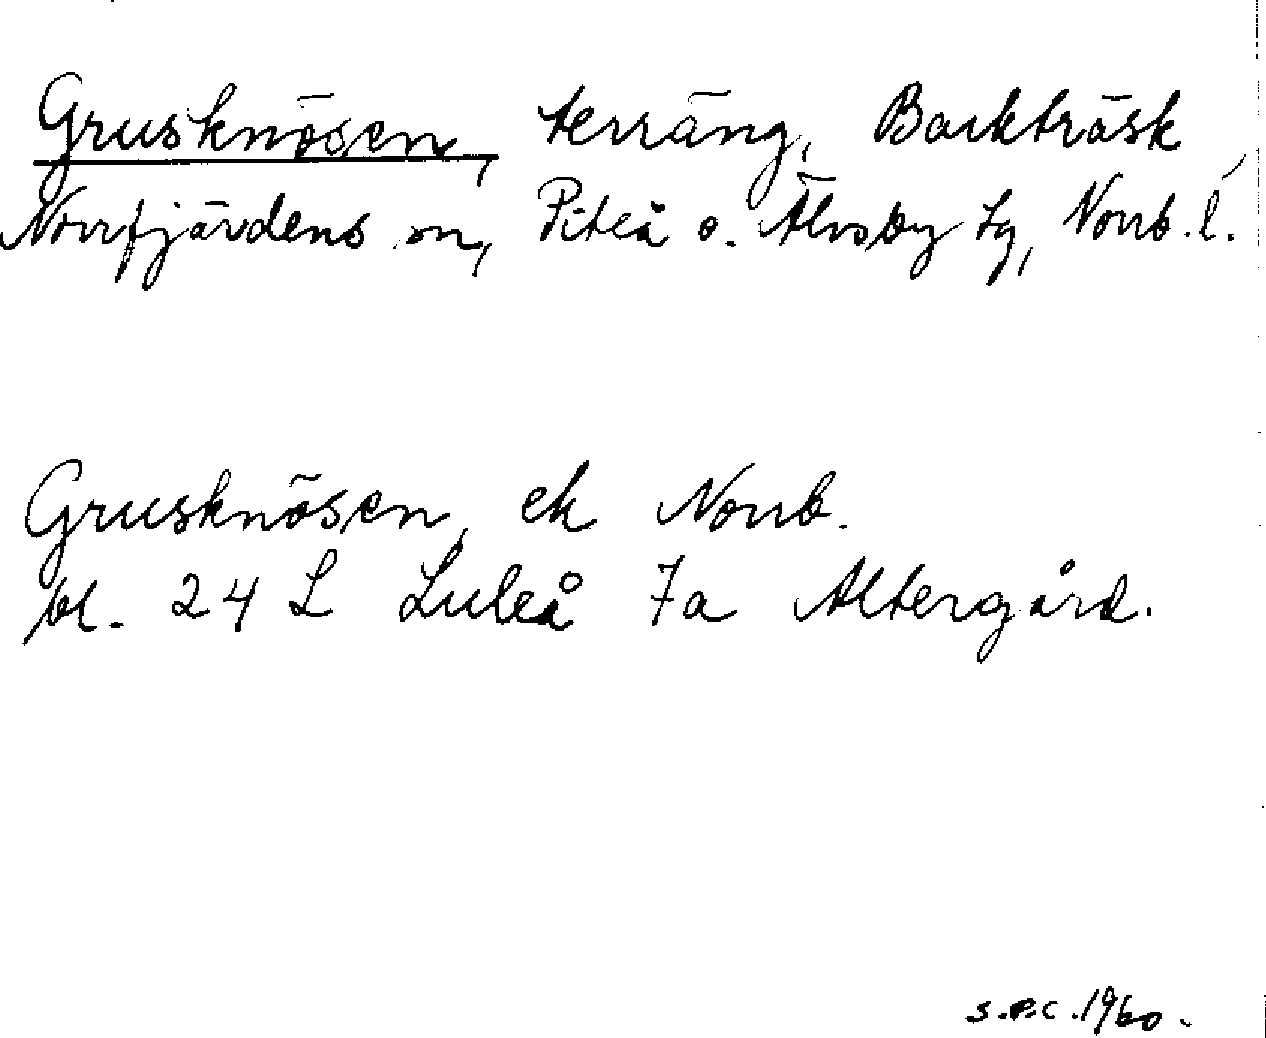 Grusknösen, terräng, Borkträsk,
Norrfjärdens sn, Piteå o. Älvsby tg, Norrb.l.
Grusknösen, ek Norrb.
bl. 24 L Luleå 7a Altergård.
S.P.C. 1960.